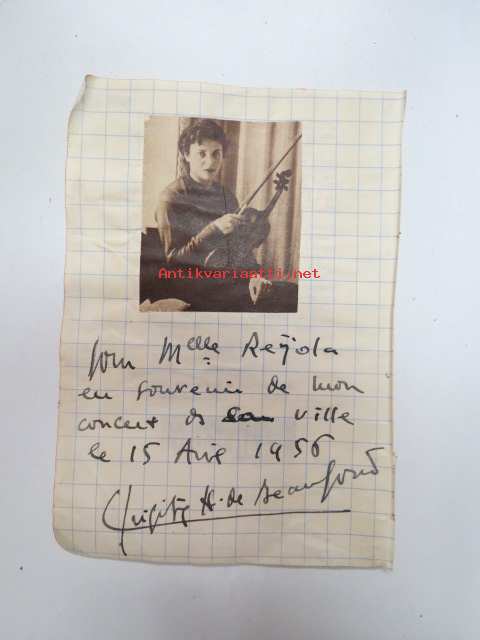 Antikvariaatti.net
Pour Melle Reijola
en souvenir de mon
concert ds ville
le 15 Avril 1956
Brigitte H. de Beaufond